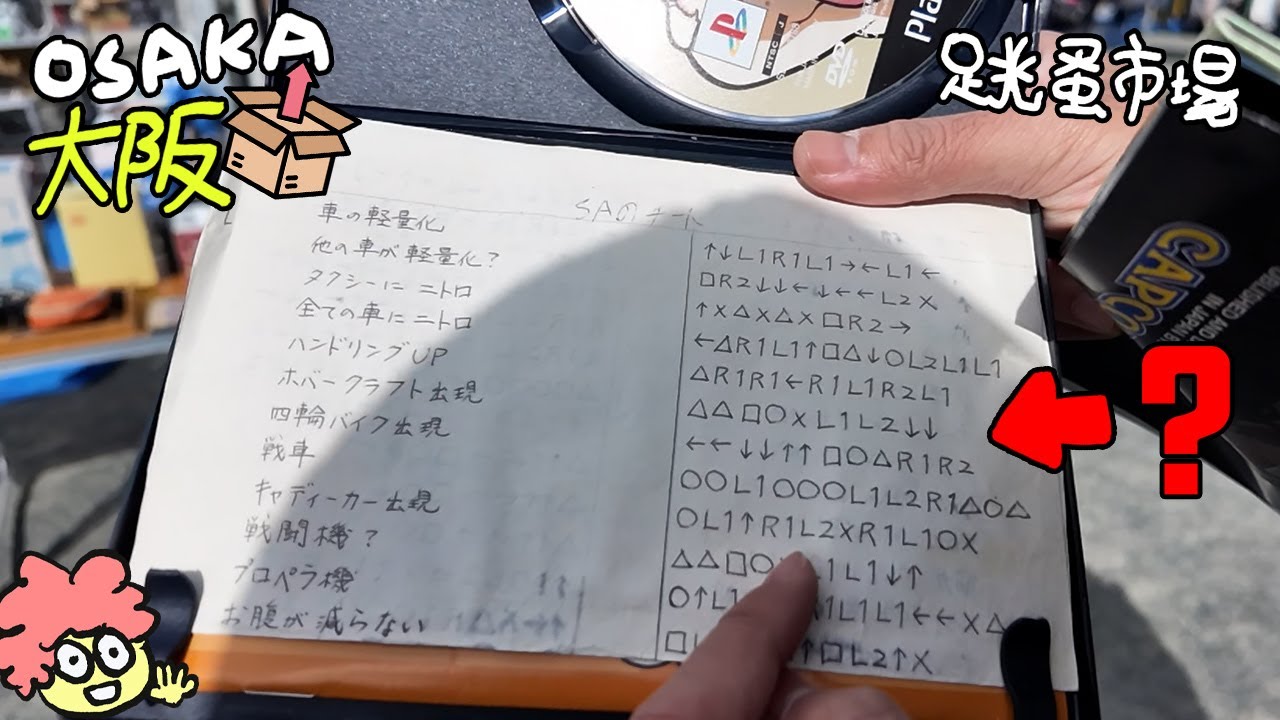 OSAKA
大阪
跳蚤市場
NTSC J
DVD
Pla
CAPCO
PUBLISHED AND D
IN JAPAN B
SAのチート
車の軽量化
他の車が軽量化?
タクシーに ニトロ
全ての車にニトロ
ハンドリングUP
ホバークラフト出現
四輪バイク出現
戦車
キャディーカー出現
戦闘機?
プロペラ機
お腹が減らない
↑↓L1R1L1→←L1←
□R2↓↓←↓←←L2X
↑X△X△X□R2→
←△R1L1↑□△↓OL2L1L1
△R1R1←R1L1R2L1
△△□OXL1L2↓↓
←←↓↓↑↑□O△R1R2
OOL1OOOL1L2R1△O△
OL1↑R1L2XR1L1OX
△△□O L1L1↓↑
O↑L1 1L1L1←←X△
□ ↑□L2↑X
?